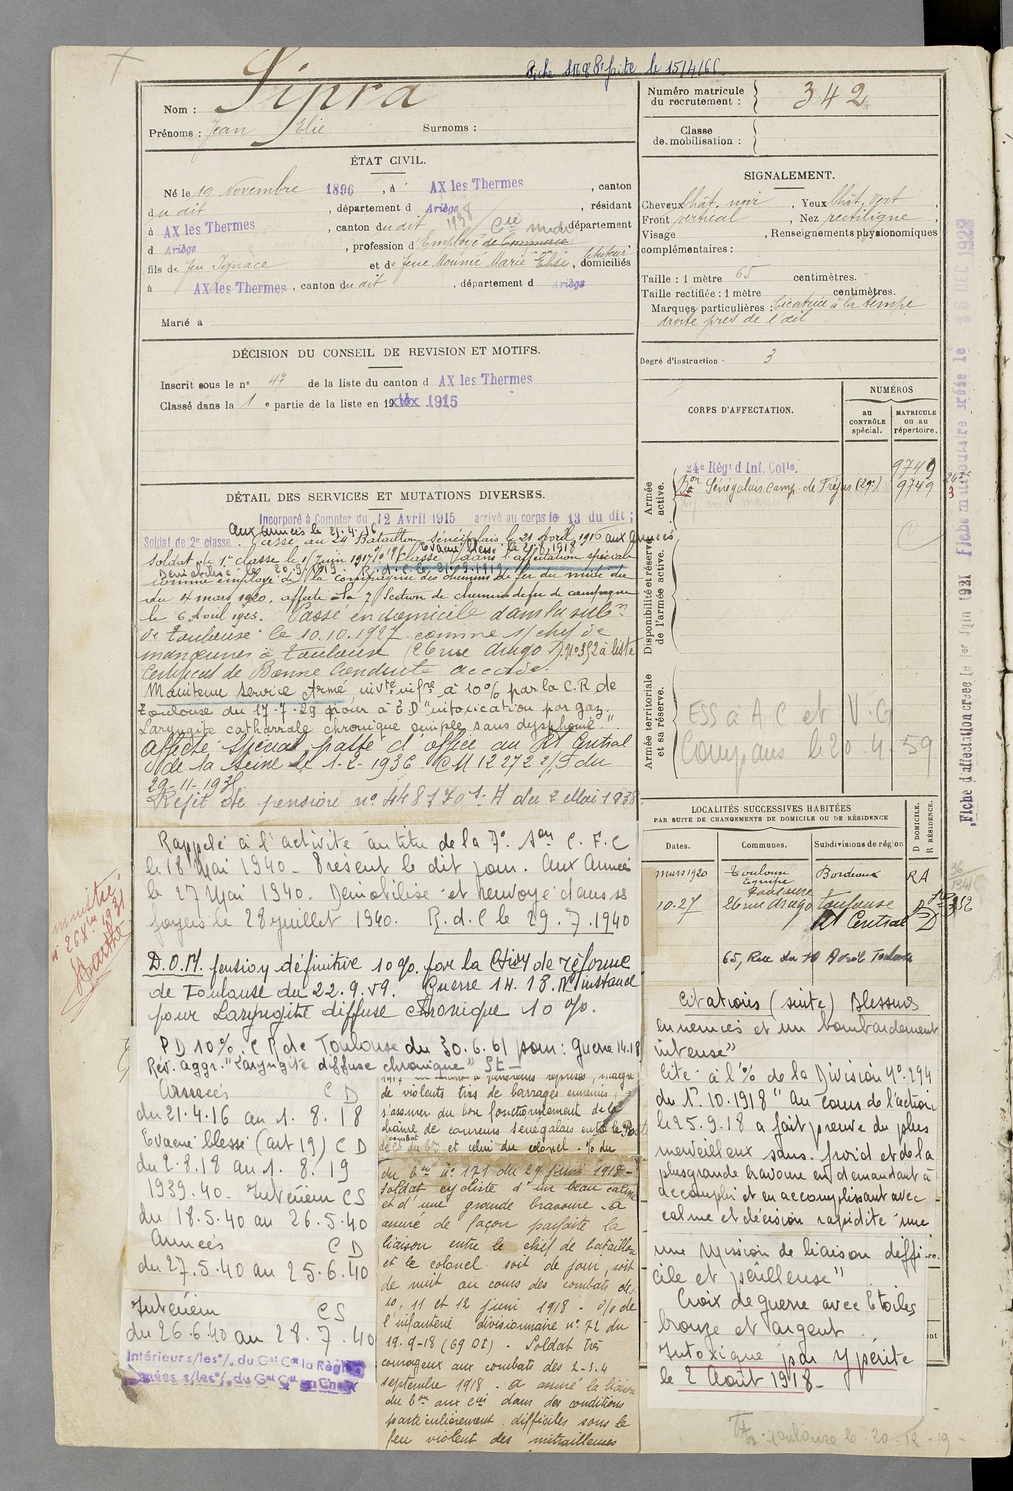 Fiche faite le 15/4/61
Nom : Sipra
Prénoms : Jean Elie Surnoms :
ÉTAT CIVIL.
Né le 19 Novembre 1896, à AX les Thermes, canton
du dit, département d Ariège, résidant
à AX les Thermes, canton du dit, département
d Ariège, profession d'Employé de Commerce
fils de feu Ignace et de feue Mounié Marie Elise, domiciliés
à AX les Thermes, canton du dit, département d Ariège
Marié à
DÉCISION DU CONSEIL DE REVISION ET MOTIFS.
Inscrit sous le n° 47 de la liste du canton d AX les Thermes
Classé dans la 1e partie de la liste en 1915
DÉTAIL DES SERVICES ET MUTATIONS DIVERSES.
Incorporé à Compter du 12 Avril 1915 arrivé au corps le 13 du dit ;
aux armées le 21.4.16
Soldat de 2e classe. Passé au 29 Bataillon Sénégalais le 21 Avril 1916 aux armées
Evacué blessé le 2.8.1918
soldat de 1re classe le 1 Juin 1917 Classé dans l'affectation spéciale
R.d.C. le 21.9.1919
comme employé de la compagnie des chemins de fer du midi du
du 4 mars 1920. affecté à la 7 Section de chemins de fer de campagne
le 6 Aout 1923. Passé en domicile dans la subon
de Toulouse le 10.10.1927 comme s/chef de
manœuvres à Toulouse (26 rue Arago) N° 352 à liste
Certificat de Bonne Conduite accordé.
Maintenu Service Armé invté infre à 10% par la C.R de
Toulouse du 17.7.29 pour à E.D "intoxication par gaz.
Laryngite catarrhale chronique simple sans dysphonie"
Affecté spécial, passé d'office au Rt Central
de la Seine le 1-2-1936. CM 12272 2/ du
29-11-1935
Rejet de pension n° 448170 1.A du 2 Mai 1938
Rappelé à l'activité au titre de la 7e Son C.F.C
le 18 Mai 1940. Présent le dit jour. Aux Armées
le 27 Mai 1940. Démobilisé et renvoyé dans ses
foyers le 28 juillet 1940. R.d.C le 29.7.1940
D.O.M. pension définitive 10% par la Cion de réforme
de Toulouse du 22.9.59. Guerre 14.18. instance
pour Laryngite diffuse chronique 10%.
PD 10%. CR de Toulouse du 30.6.61 pour : guerre 14.18
Rév. aggr. "Laryngite diffuse chronique"
Armées C D
du 21.4.16 au 1.8.18
Evacué blessé (art 19) C D
du 2.8.18 au 1.8.19
1939.40. Intérieur CS
du 18.5.40 au 26.5.40
Armées C D
du 27.5.40 au 25.6.40
Intérieur CS
du 26.6.40 au 28.7.40
à plusieurs reprises, malgré
de violents tirs de barrages ennemis,
s'assurer du bon fonctionnement de la
chaîne de coureurs sénégalais entre le Poste
de combat du Bon et celui du colonel. O/o du
du bon n° 171 du 29 Juin 1918 -
Soldat cycliste d'un beau calme
et d'une grande bravoure. A
assuré de façon parfaite la
liaison entre le chef de bataillon
et le colonel soit de jour, soit
de nuit au cours des combats des
10, 11 et 12 juin 1918 - O/o de
l'infanterie divisionnaire n° 72 du
19-9-18 (69 DI) - Soldat très
courageux aux combats des 2-3.4
septembre 1918. a assuré la liaison
du bon aux cies dans des conditions
particulièrement difficiles sous le
feu violent des mitrailleuses
Numéro matricule du recrutement : 342
Classe de mobilisation :
SIGNALEMENT.
Cheveux chât. noir, Yeux chât. vert,
Front vertical, Nez rectiligne,
Visage , Renseignements physionomiques
complémentaires :
Taille : 1 mètre 65 centimètres.
Taille rectifiée : 1 mètre centimètres.
Marques particulières : Cicatrice à la tempe
droite près de l'œil
Degré d'instruction : 3
CORPS D'AFFECTATION.
NUMÉROS
au CONTRÔLE spécial.
MATRICULE ou au répertoire.
Armée active.
24e Rég! d Inf. Colle. 9749
Bon Sénégalais Camp de Fréjus (29e) 9749
Disponibilité et réserve de l'armée active.
Armée territoriale et sa réserve.
ESS à A C et V G
Compans le 20.4.59
LOCALITÉS SUCCESSIVES HABITÉES
PAR SUITE DE CHANGEMENTS DE DOMICILE OU DE RÉSIDENCE
Dates. Communes. Subdivisions de région
D DOMICILE.
R RÉSIDENCE.
mars 1920 Toulouse Bordeaux RA
10.27 26 rue Arago Toulouse D
Rt Central D
65, Rue du 10 Avril Toulouse
Citations (suite) Blessures
ennemies et un bombardement
intense"
Cité à l'O/o de la Division N° 194
du 1er.10.1918 "Au cours de l'action
le 25.9.18 a fait preuve du plus
merveilleux sang-froid et de la
plus grande bravoure en demandant à
accomplir et en accomplissant avec
calme et décision rapidité une
une mission de liaison diffi-
cile et périlleuse"
Croix de guerre avec Etoiles
bronze et argent.
Intoxiqué par ypérite
le 2 Août 1918 -
Toulouse le 20-12-19